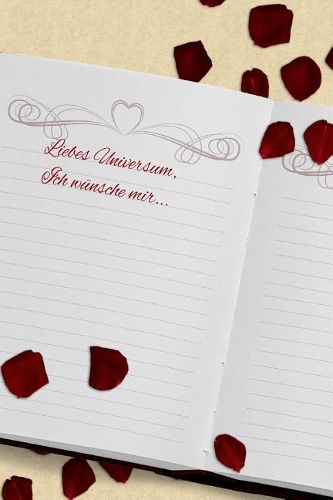 Liebes Universum,
Ich wünsche mir...